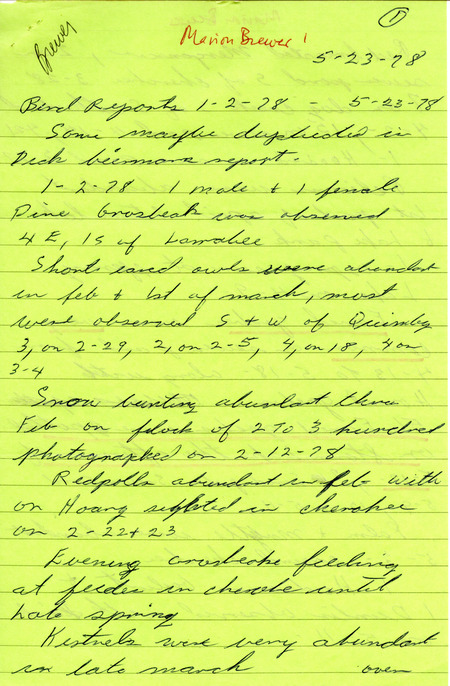 ①
Brewer
Marion Brewer
5-23-78
Bird Reports 1-2-78 - 5-23-78
Some maybe duplicates in
Dick report.
1-2-78 1 male + 1 female
Pine Grosbeak was observed
4 E, 1 S of Larrabee
Short eared owls were abundant
in feb + 1st of march, most
were observed S + W of Quimby
3, on 2-29, 2, on 2-5, 4, on 18, 4 on
3-4
Snow bunting abundant thru
Feb on flock of 2 TO 3 hundred
photographed on 2-12-78
Redpolls abundant in feb with
on Hoary sighted in cherokee
on 2-22+23
Evening Grosbeaks feeding
at feeder in until
Late spring
Kestrels were very abundant
in late march over